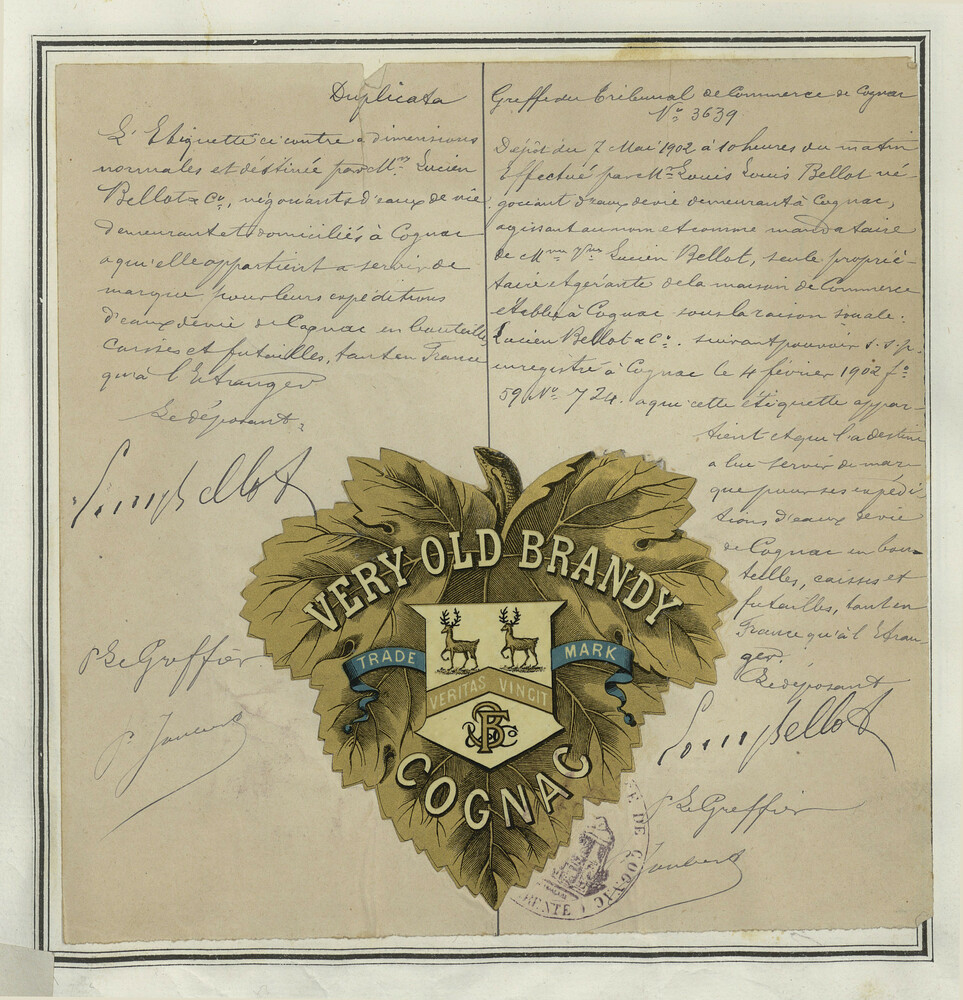 Duplicata
L'Etiquette ci contre a dimensions
normales et déstinée par Mrs Lucien
Bellot & Co, négociants d'eaux de vie
demeurant et domiciliés à Cognac
a qu'elle appartient a servir de
marque pour leurs expéditions
d'eaux de vie de Cognac en bouteilles,
caisses et futailles, tant en France
qu'à l'Etranger
Le déposant.
Louis Bellot
P Le Greffier
Greffe du Tribunal de Commerce de Cognac
No 3639.
Dépôt du 7 Mai 1902 à 10 heures du matin
Effectué par Mr Louis Louis Bellot né-
gociant d'eaux de vie demeurant à Cognac,
agissant au nom et comme mandataire
de Mme Vve Lucien Bellot, seule proprié-
taire et gérante de la maison de Commerce
établie à Cognac sous la raison sociale:
Lucien Bellot & Co. suivant pouvoir s.s.p.
enregistré à Cognac le 4 février 1902 fo
59 No 724. a qui cette étiquette appar-
tient et qui l'a destine
a lui servir de mar-
que pour ses expédi-
tions d'eaux de vie
de Cognac en bou-
teilles, caisses et
futailles, tant en
France qu'à l'Etran-
ger.
Le déposant
Louis Bellot
P Le Greffier
VERY OLD BRANDY
TRADE MARK
VERITAS VINCIT
COGNAC
DE COGNAC